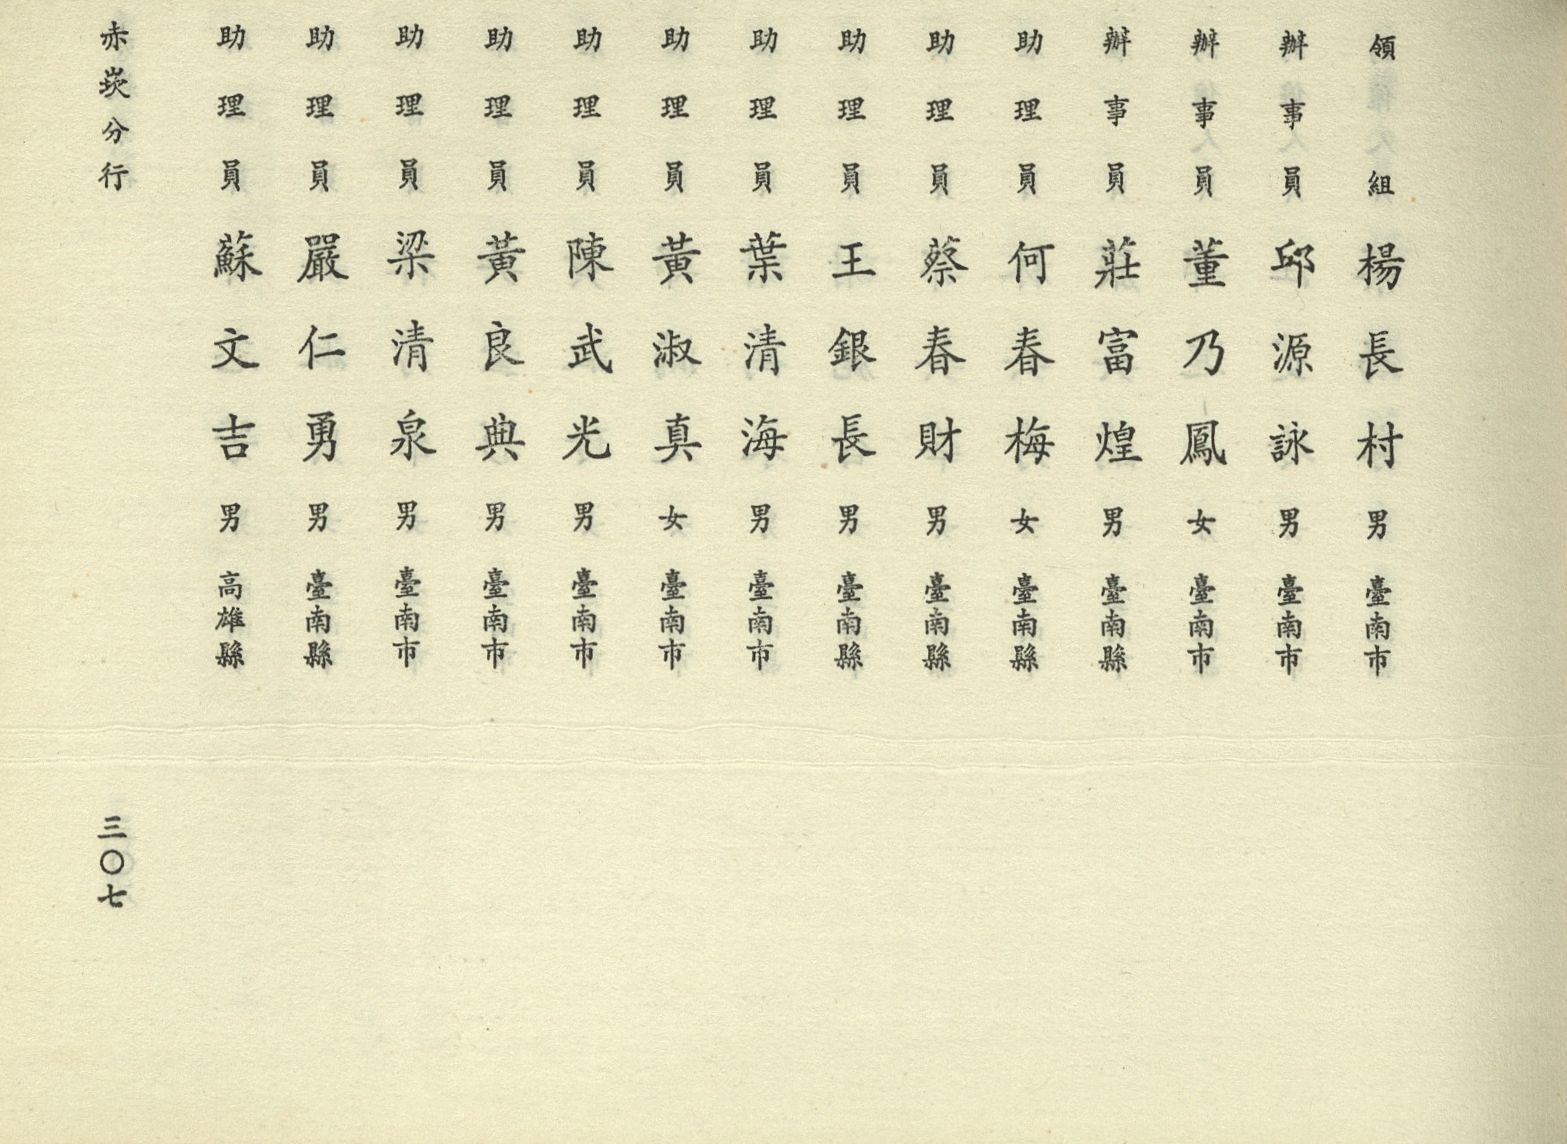 領組楊長村男臺南市
辦事員邱源詠男臺南市
辦事員董乃鳳女臺南市
辦事員莊富煌男臺南縣
助理員何春梅女臺南縣
助理員蔡春財男臺南縣
助理員王銀長男臺南縣
助理員葉清海男臺南市
助理員黃淑真女臺南市
助理員陳武光男臺南市
助理員黃良典男臺南市
助理員梁清泉男臺南市
助理員嚴仁勇男臺南縣
助理員蘇文吉男高雄縣
赤崁分行
三〇七